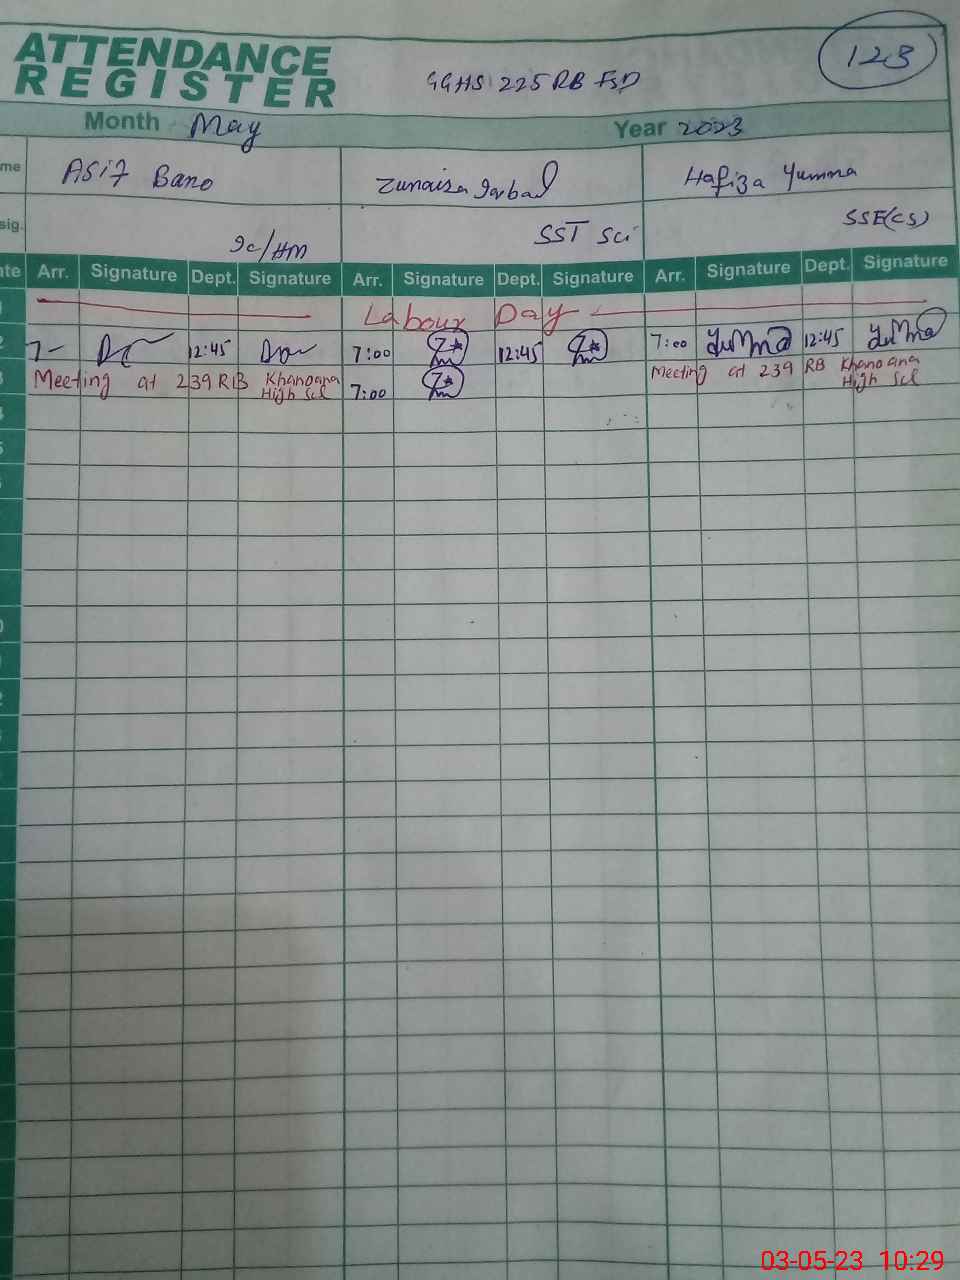 ATTENDANCE
REGISTER
GGHS 225 RB FSD
123
Month May
Year 2023
me
Asif Bano
Zunaira Iqbal
Hafiza Yumna
sig.
Ic/HM
SST Sci
SSE(CS)
ate Arr. Signature Dept. Signature Arr. Signature Dept. Signature Arr. Signature Dept. Signature
Labour Day
2 7- 12:45 7:00 12:45 7:00 Yumna 12:45 Yumna
3 Meeting at 239 RB Khanoana High Scl 7:00 Meeting at 239 RB Khanoana High Scl
03-05-23 10:29